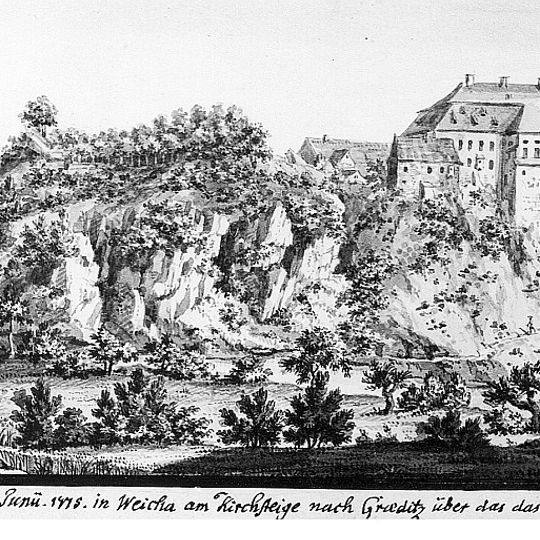 Junü. 1775. in Weicha am Kirchsteige nach Grœditz über das das